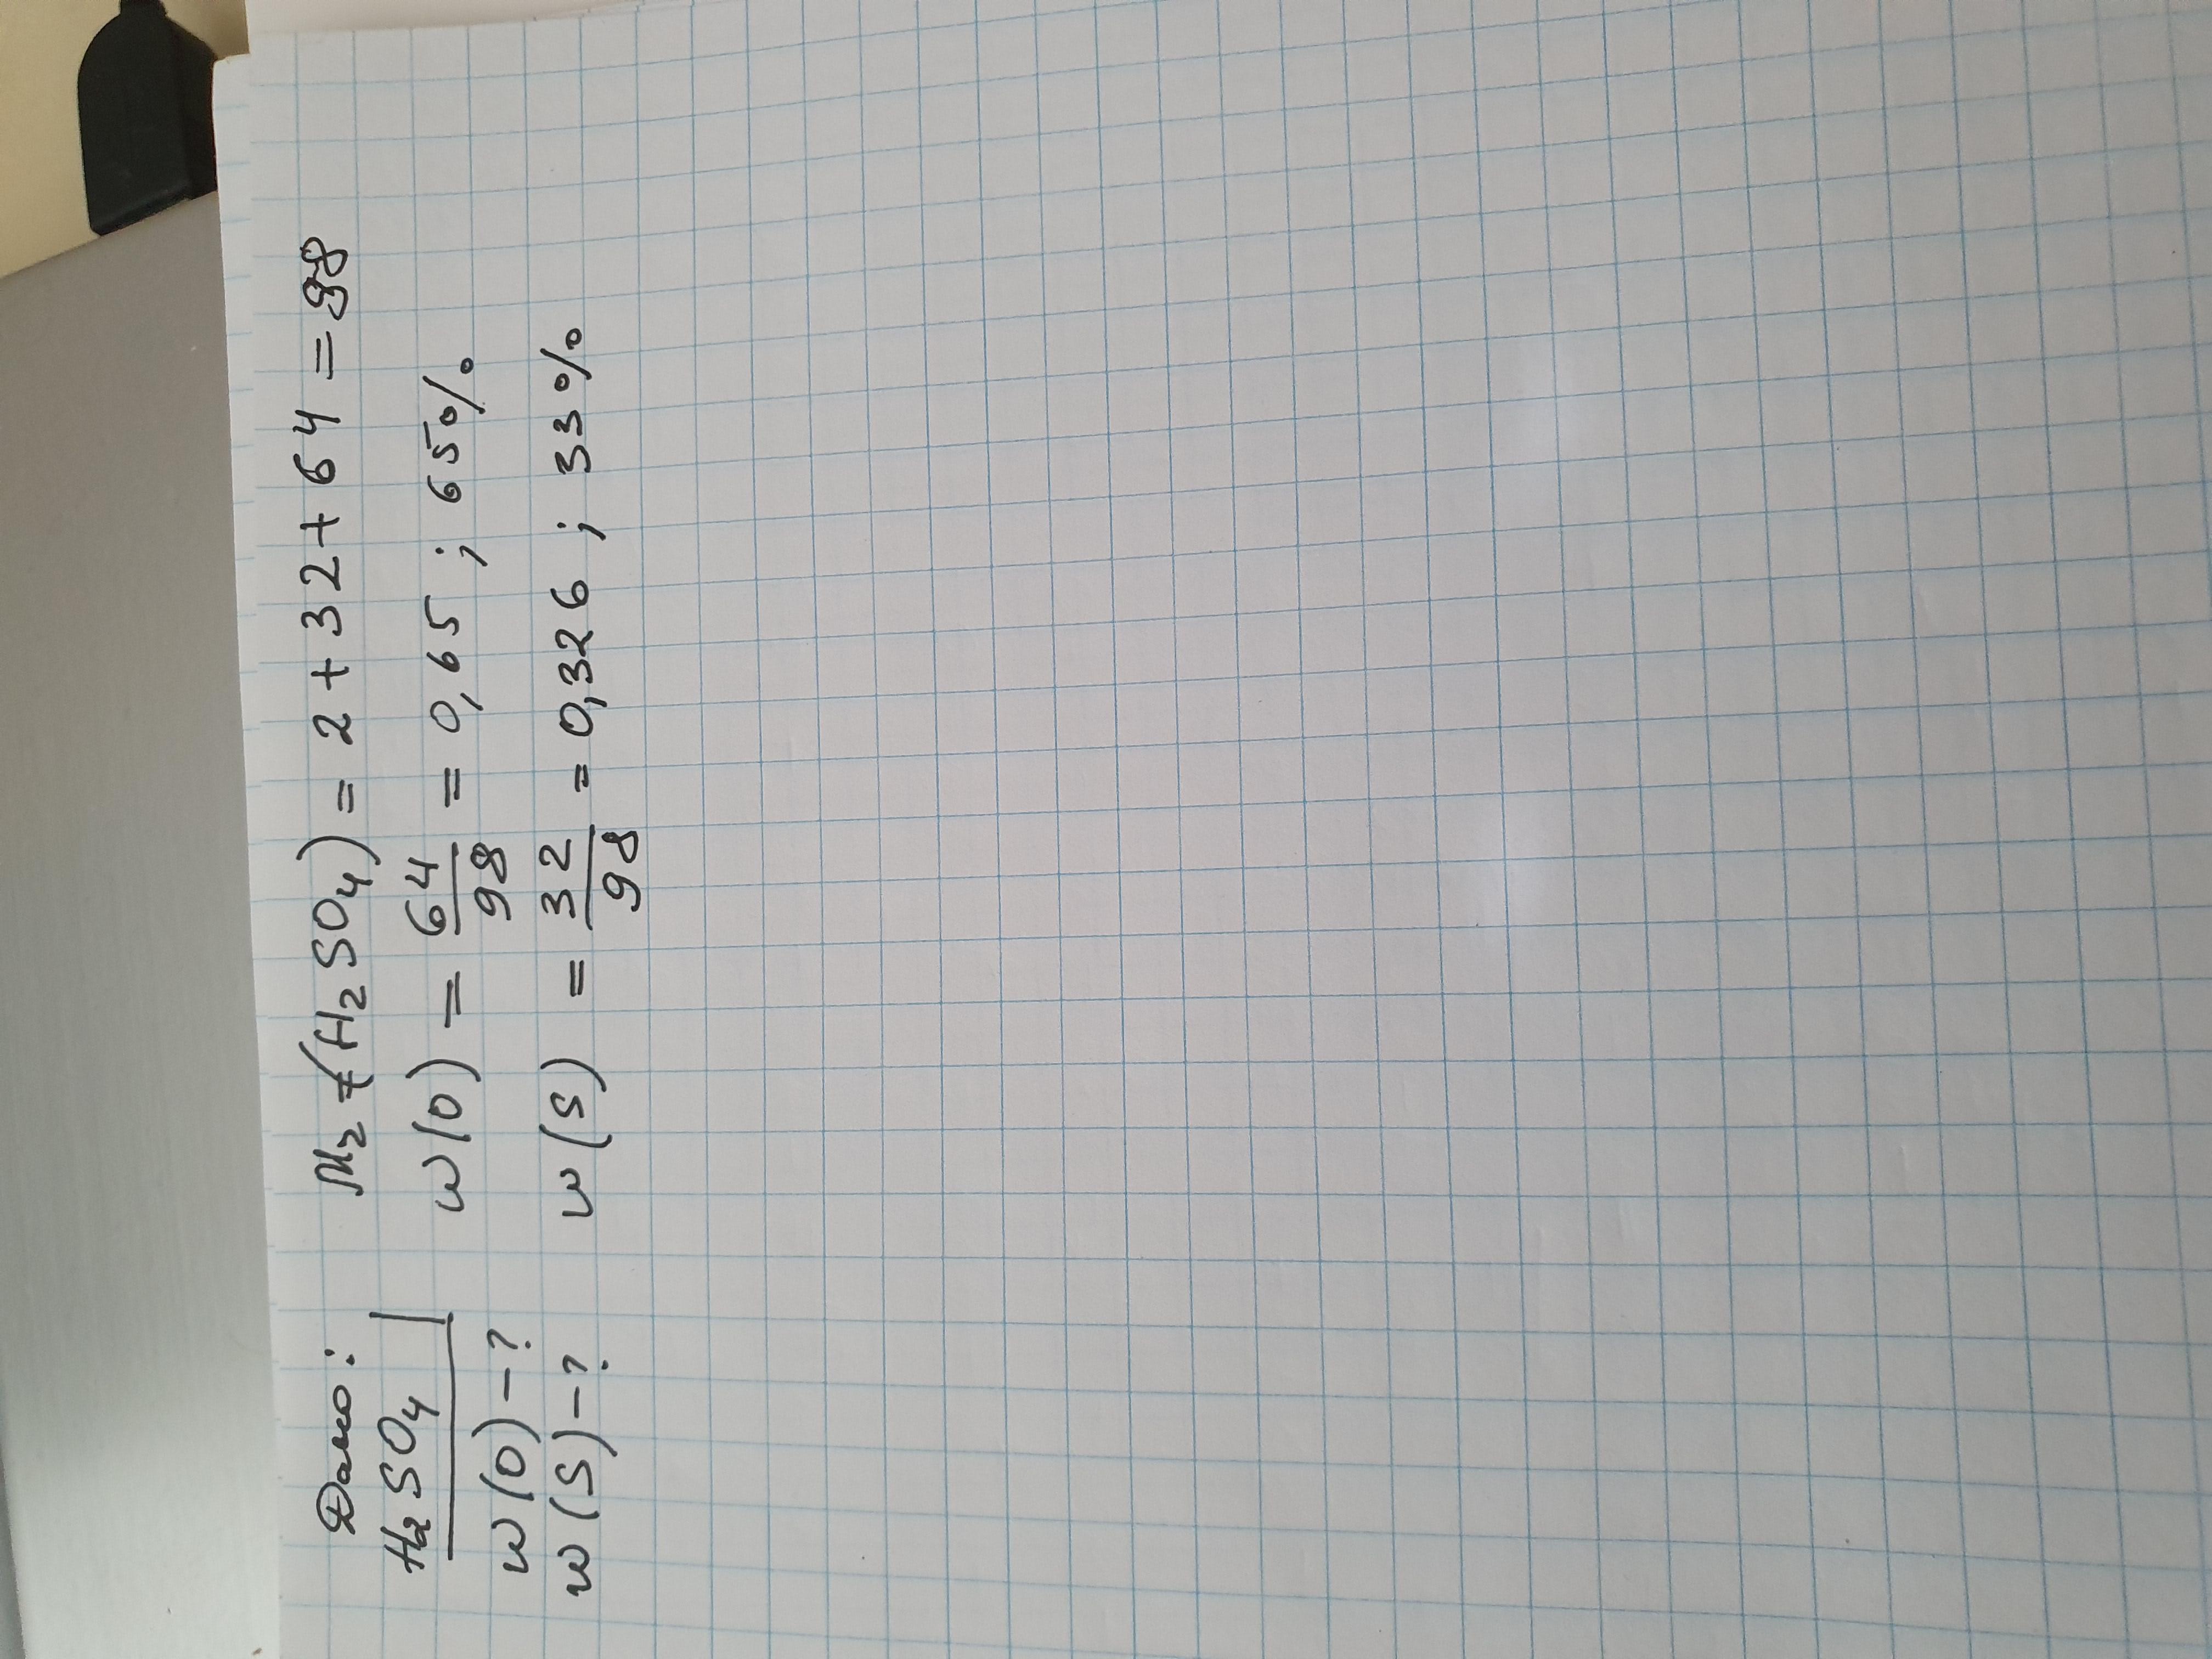 Дано:
H₂SO₄
w(O)-?
w(S)-?
Mr (H₂SO₄) = 2 + 32 + 64 = 98
w(O) = 64/98 = 0,65 ; 65%
w(S) = 32/98 = 0,326 ; 33%